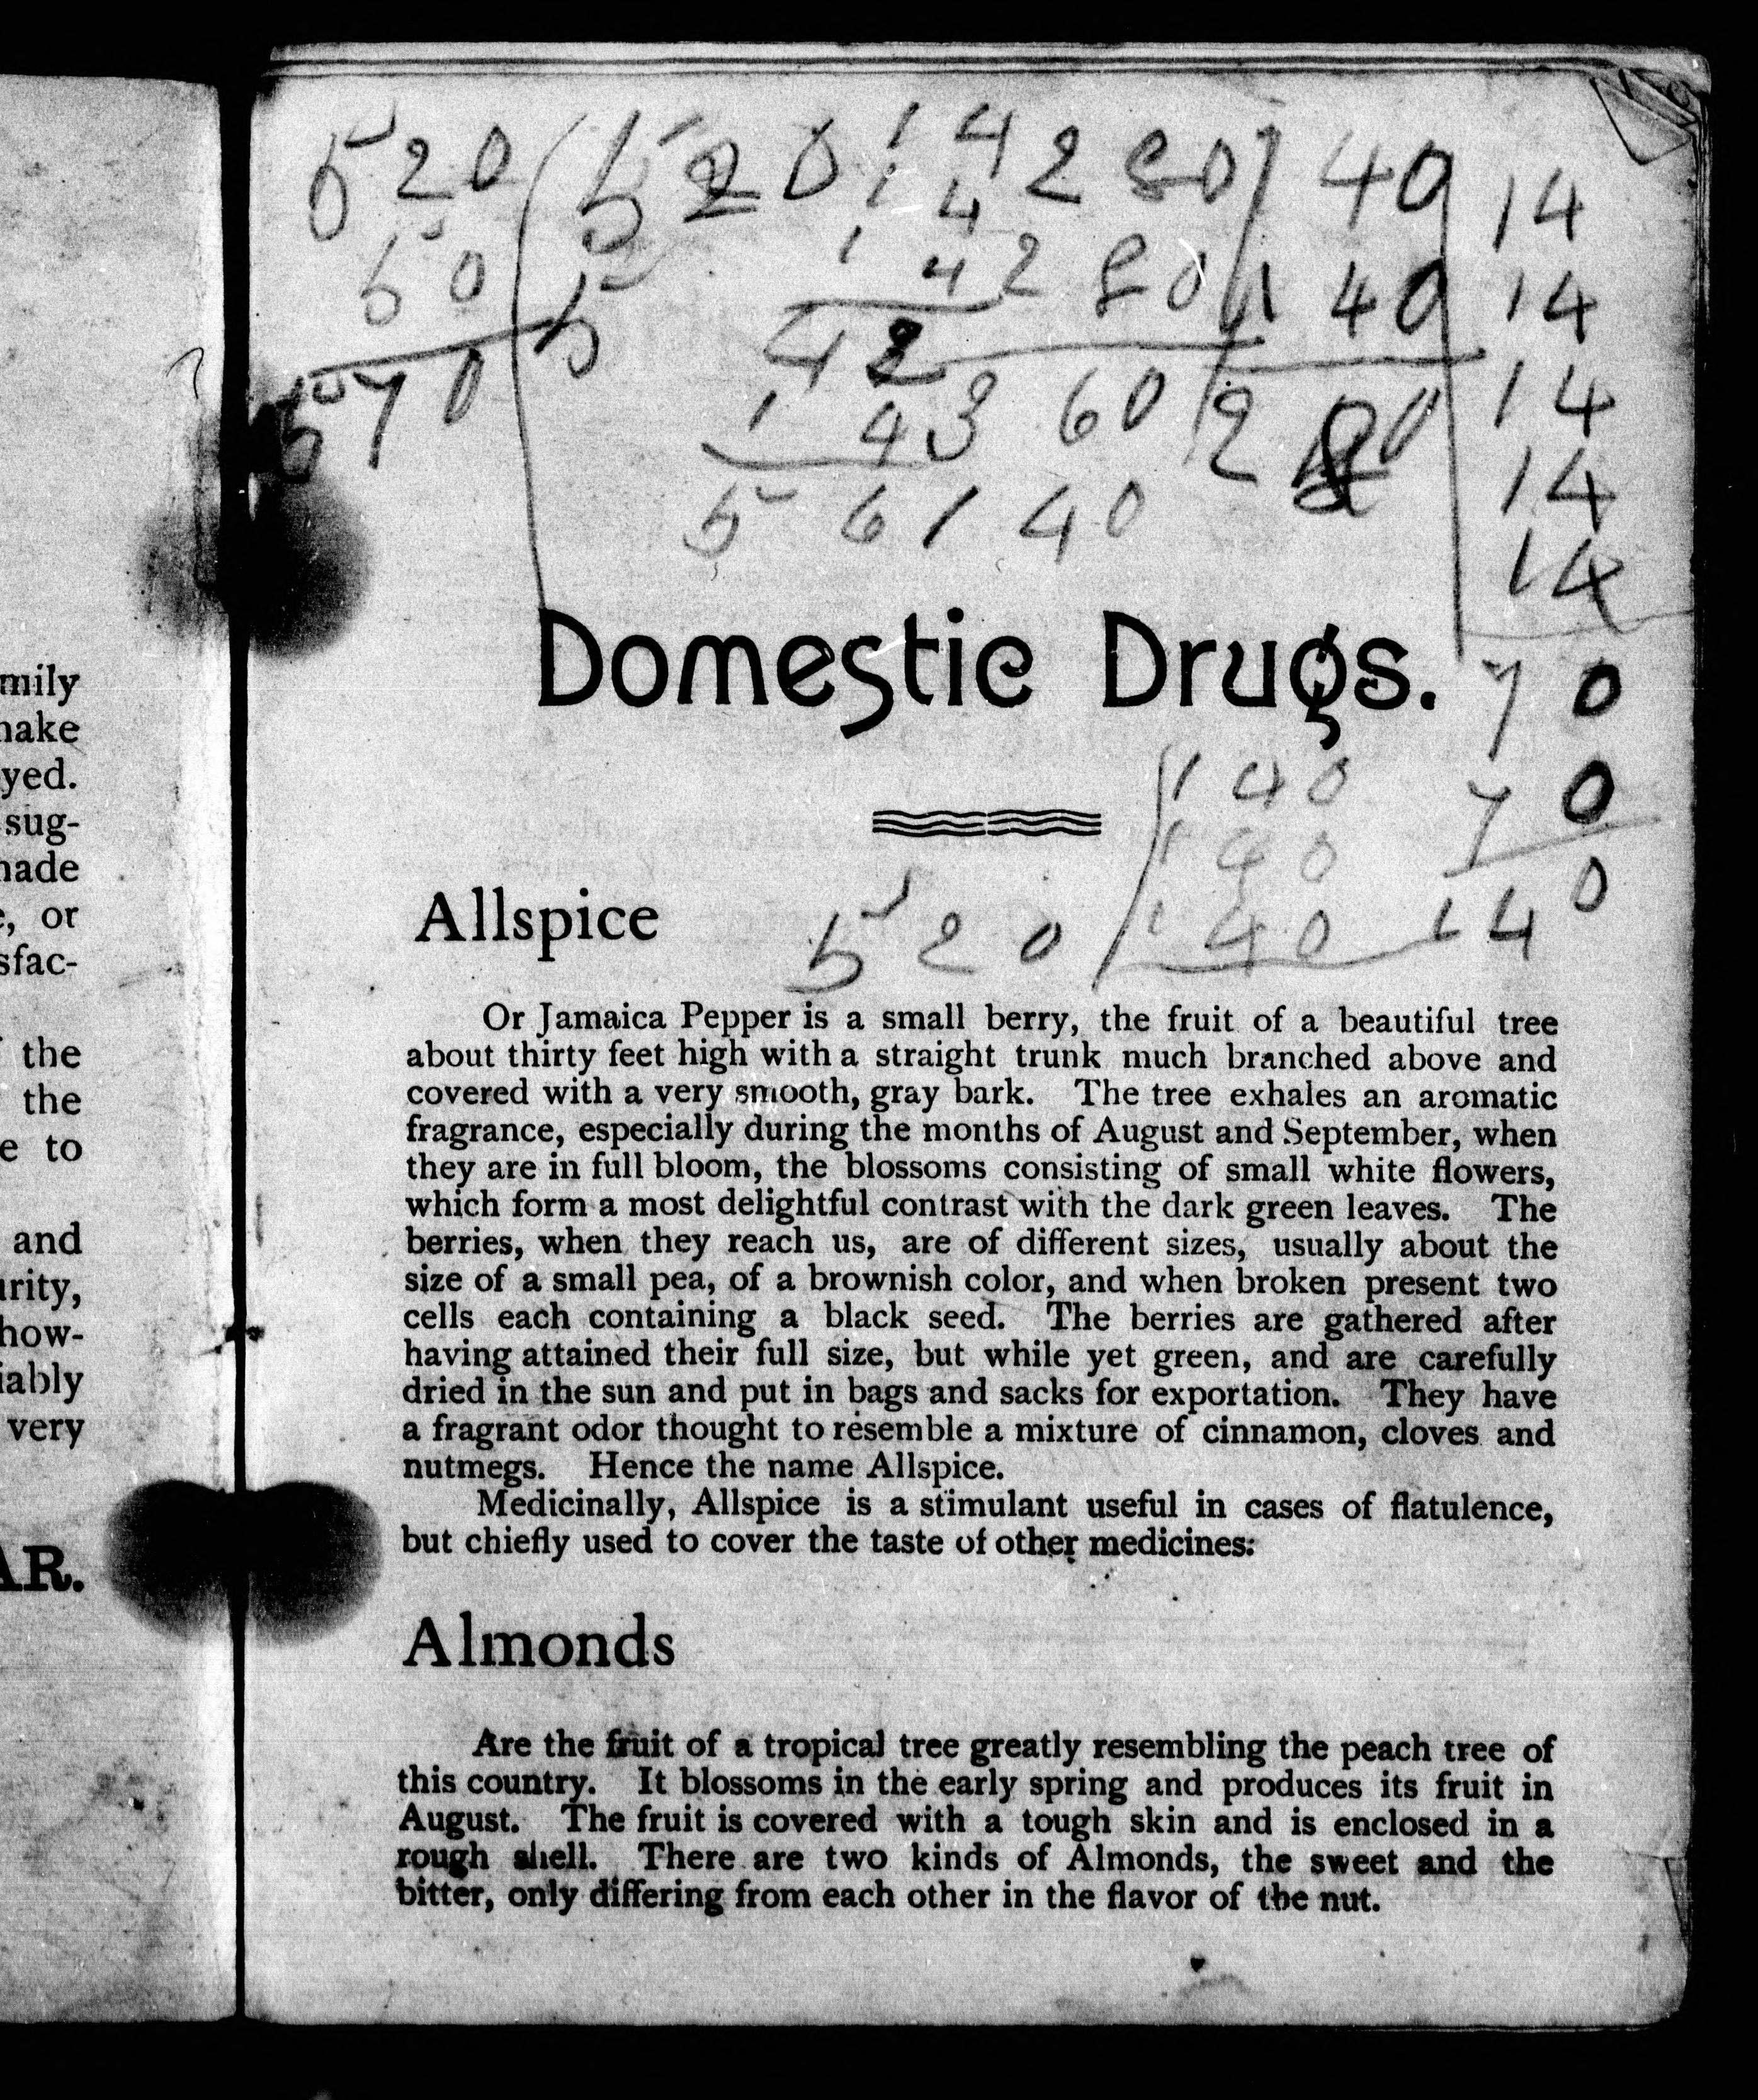 520 520 14 280 140 14
50 14 280 140 14
5 14
570 42 360 280 14
14 14
56 140 14
Domestic Drugs.
70
140 70
140 140
520 140
mily
make
yed.
sug-
made
, or
sfac-
the
the
e to
and
urity,
how-
iably
very
AR.
Allspice
Or Jamaica Pepper is a small berry, the fruit of a beautiful tree
about thirty feet high with a straight trunk much branched above and
covered with a very smooth, gray bark. The tree exhales an aromatic
fragrance, especially during the months of August and September, when
they are in full bloom, the blossoms consisting of small white flowers,
which form a most delightful contrast with the dark green leaves. The
berries, when they reach us, are of different sizes, usually about the
size of a small pea, of a brownish color, and when broken present two
cells each containing a black seed. The berries are gathered after
having attained their full size, but while yet green, and are carefully
dried in the sun and put in bags and sacks for exportation. They have
a fragrant odor thought to resemble a mixture of cinnamon, cloves and
nutmegs. Hence the name Allspice.
Medicinally, Allspice is a stimulant useful in cases of flatulence,
but chiefly used to cover the taste of other medicines:
Almonds
Are the fruit of a tropical tree greatly resembling the peach tree of
this country. It blossoms in the early spring and produces its fruit in
August. The fruit is covered with a tough skin and is enclosed in a
rough shell. There are two kinds of Almonds, the sweet and the
bitter, only differing from each other in the flavor of the nut.